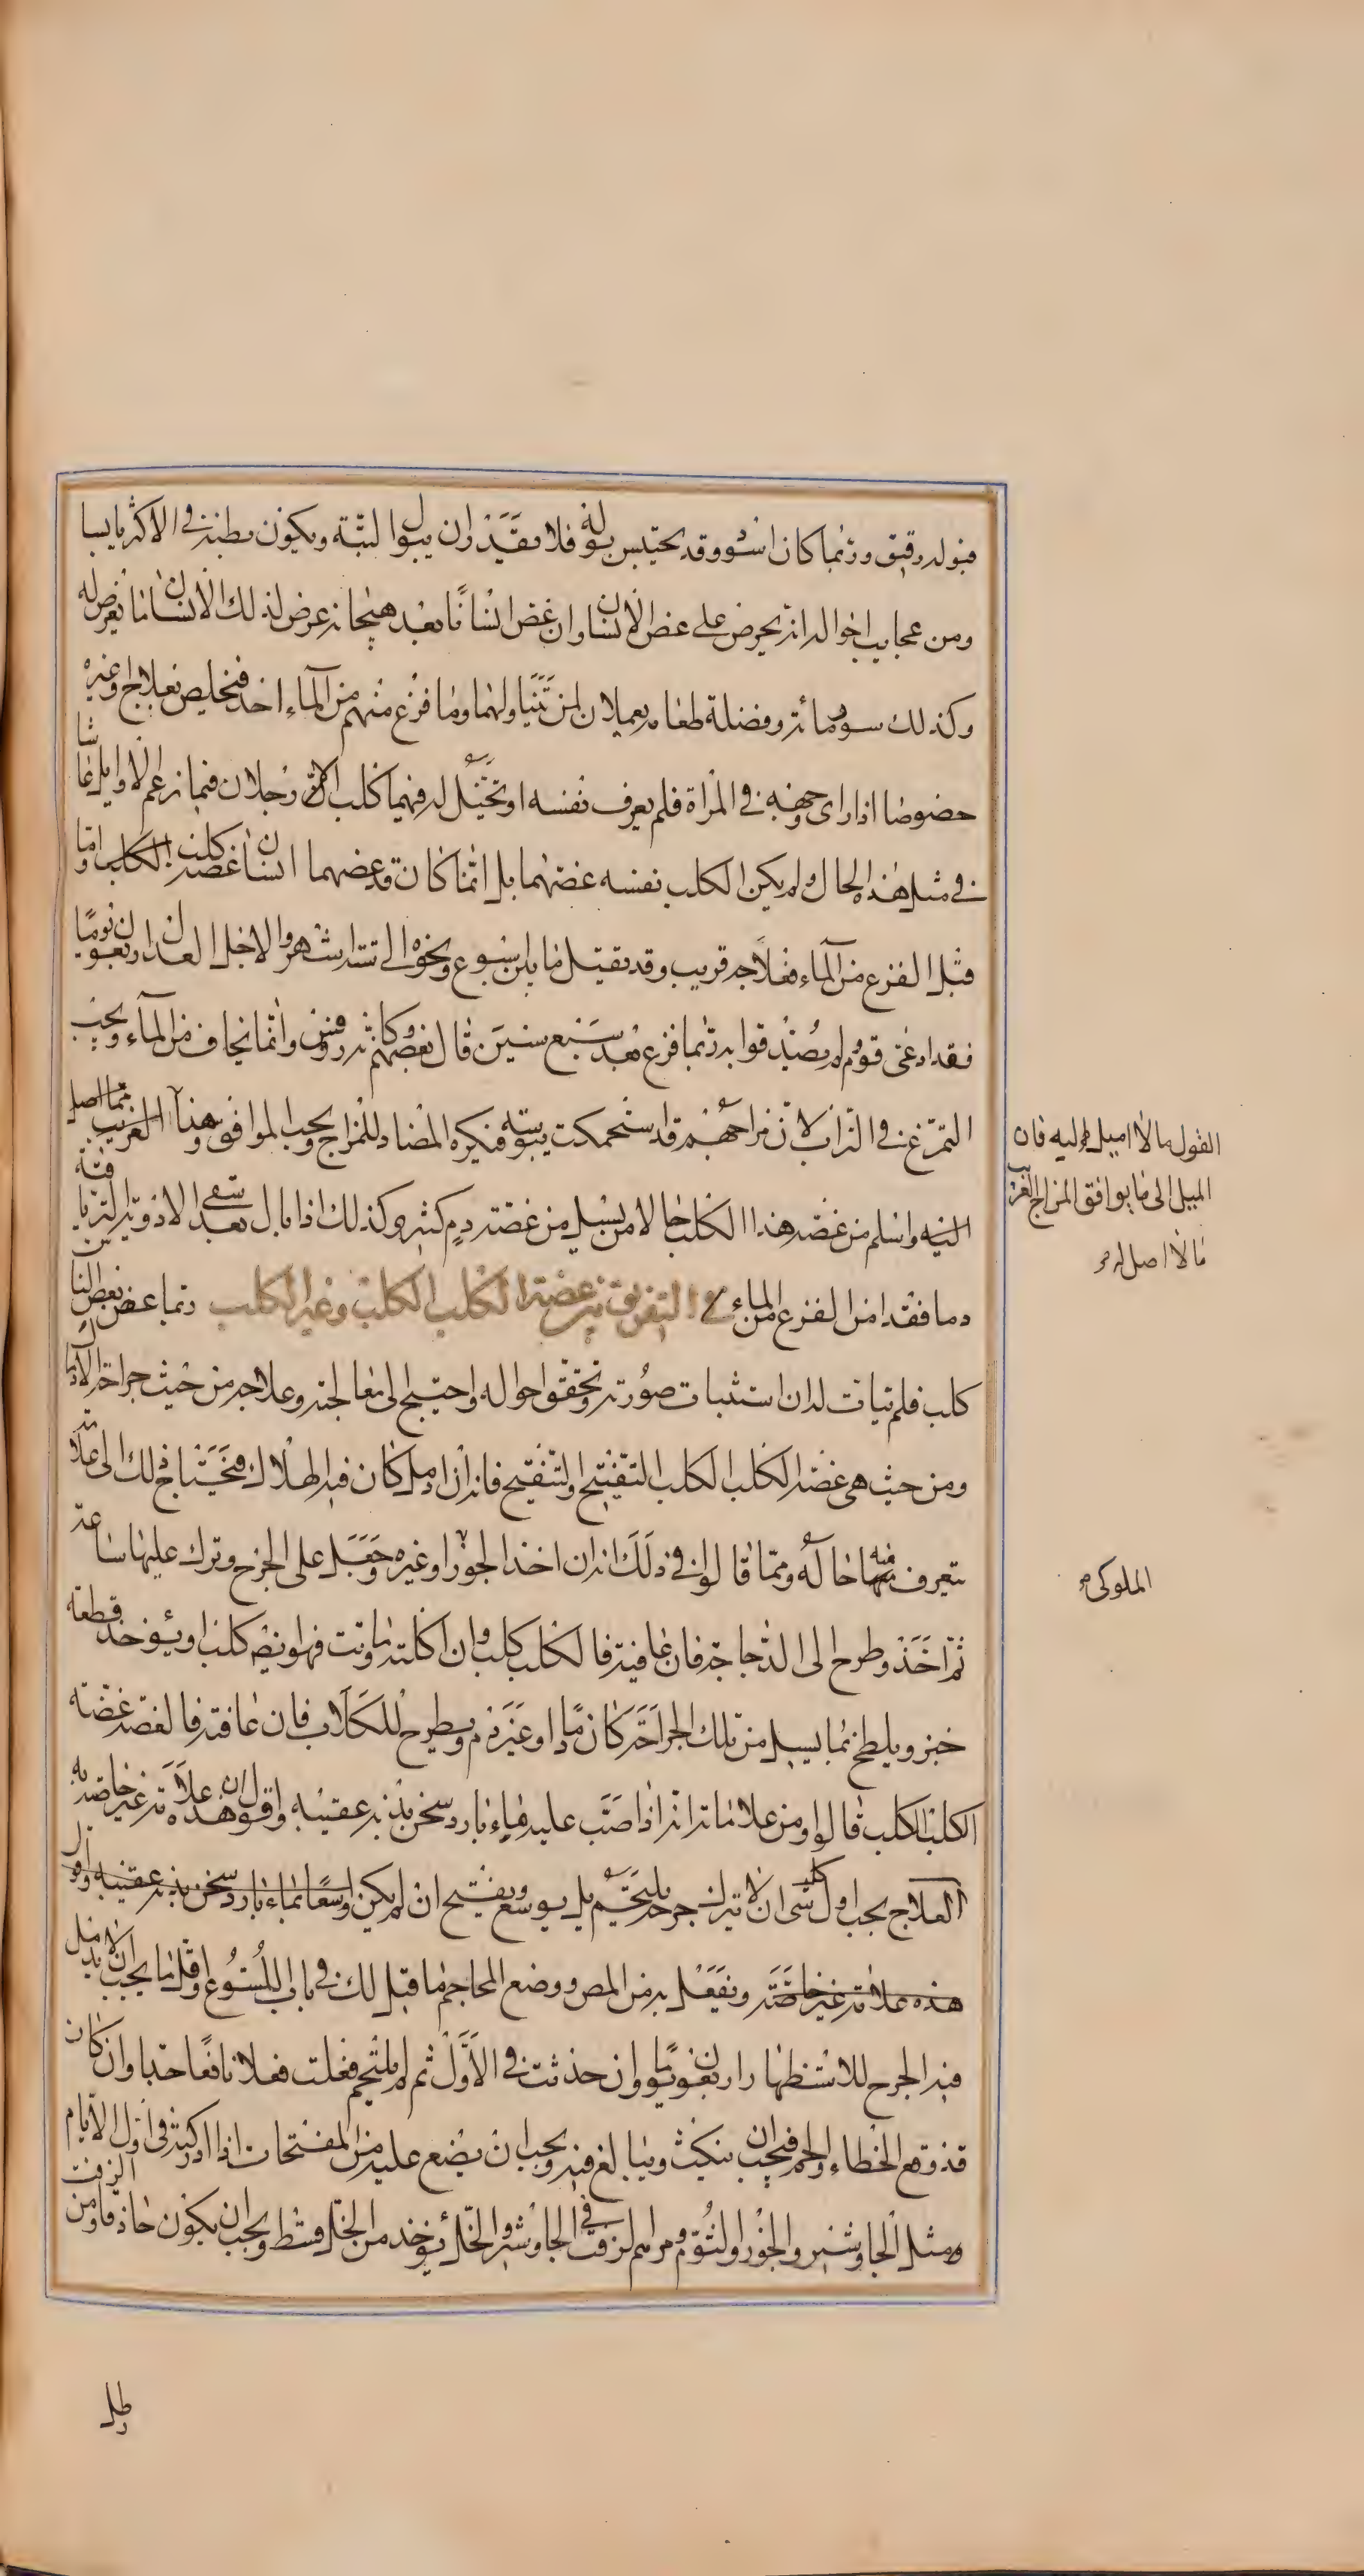 فبوله رقيق وربما كان اسود وقد يحتبس بوله فلا يقدر ان يبول البتة ويكون بطنه في الاكثر يابسا
ومن عجايب احواله انه يحرض على عض الانسان وان عض انسانا بعد هيجانه عرض لذلك الانسان ما يعرض له
وكذلك سور مائه وفضلة طعامه يعملان لمن تناولهما وما فزع منهم من الماء احد فتخلص بعلاج او غيره
خصوصا اذا راى وجهه في المراة فلم يعرف نفسه او تخيل له فيها كلب الا رجلان فيما زعم الاوايل عاشا
في مثل هذه الحال ولم يكن الكلب نفسه عضهما بل انما كان قد عضهما انسان عضه كلب الكلب واما
قبل الفزع من الماء فعلاجه قريب وقد يقتل ما بين اسبوع ونحوه الى ستة اشهر والاجل العدل اربعون يوما
فقد ادعى قوم لم يصدقوا به ربما فزع بعد سبع سنين قال بعضهم وكانه روفس وانما يخاف من الماء ويحب
التمرغ في التراب لان مزاجهم قد استحكمت يبوسته فيكره المضاد للمزاج ويحب الموافق وهذا الغريب مما اصل
اليه واسلم من عضه هذا الكلب حالا من يسيل من عضته دم كثير وكذلك اذا بال بعد سقي الادوية الترياقية
دما فقد امن الفزع من الماء في التفريق بين عضة الكلب الكلب وغير الكلب ربما عض بعض الناس
كلب فلم يتات له ان استثبات صورته وتحقق احواله واحتيج الى معالجته وعلاجه من حيث جراحة الادمال
ومن حيث هي عضة الكلب الكلب التفتيح والتقيح فانه ان ادمل كان فيه الهلاك فيحتاج لك الى علامة
يتعرف منها حاله ومما قالوا في ذلك انه ان اخذ الجوز او غيره وجعل على الجرح وترك عليها ساعة
ثم اخذ وطرح الى الدجاجة فان عافته فالكلب كلب وان اكلته وماتت فهو عضه كلب او يؤخذ قطعة
خبز ويلطخ بما يسيل من تلك الجراحة كان دما او غير دم ويطرح للكلاب فان عافته فالعضة عضة
الكلب الكلب قالوا ومن علاماته انه اذا صب عليه ماء بارد سخن بدنه عقيبه واقول ان هذه علامة غير خاصة به
العلاج يجب اول كل شى ان لا يترك جرحه يلتحم بل يوسع ويفتح ان لم يكن واسعا بماء بارد سخن بدنه عقيبه واقول
هذه علامة غير خاصة ويفعل به من المص ووضع المحاجم ما قيل لك في باب اللسوع واقل ما يجب ان لا يدمل
فيه الجرح للاستظهار اربعون يوما وان حدثت في الاول ثم لم يلتحم فعلت فعلا نافعا جدا وان كان
قد وقع الخطاء والحم فيجب ان ينكث ويبالغ فيه ويجب ان يضع عليه من المفتحات اذا ادركته في اول الايام
ومثل الجاوشير والجوز والثوم ومرهم الزفت في الجاوشير والخل يؤخذ من الخل قسط ويجب ان يكون حاذقا ومن الزفت
رطل
القول مالا اميل اليه فان
الميل الى ما يوافق المزاج الغريب
مالا اصل له
الملوكى